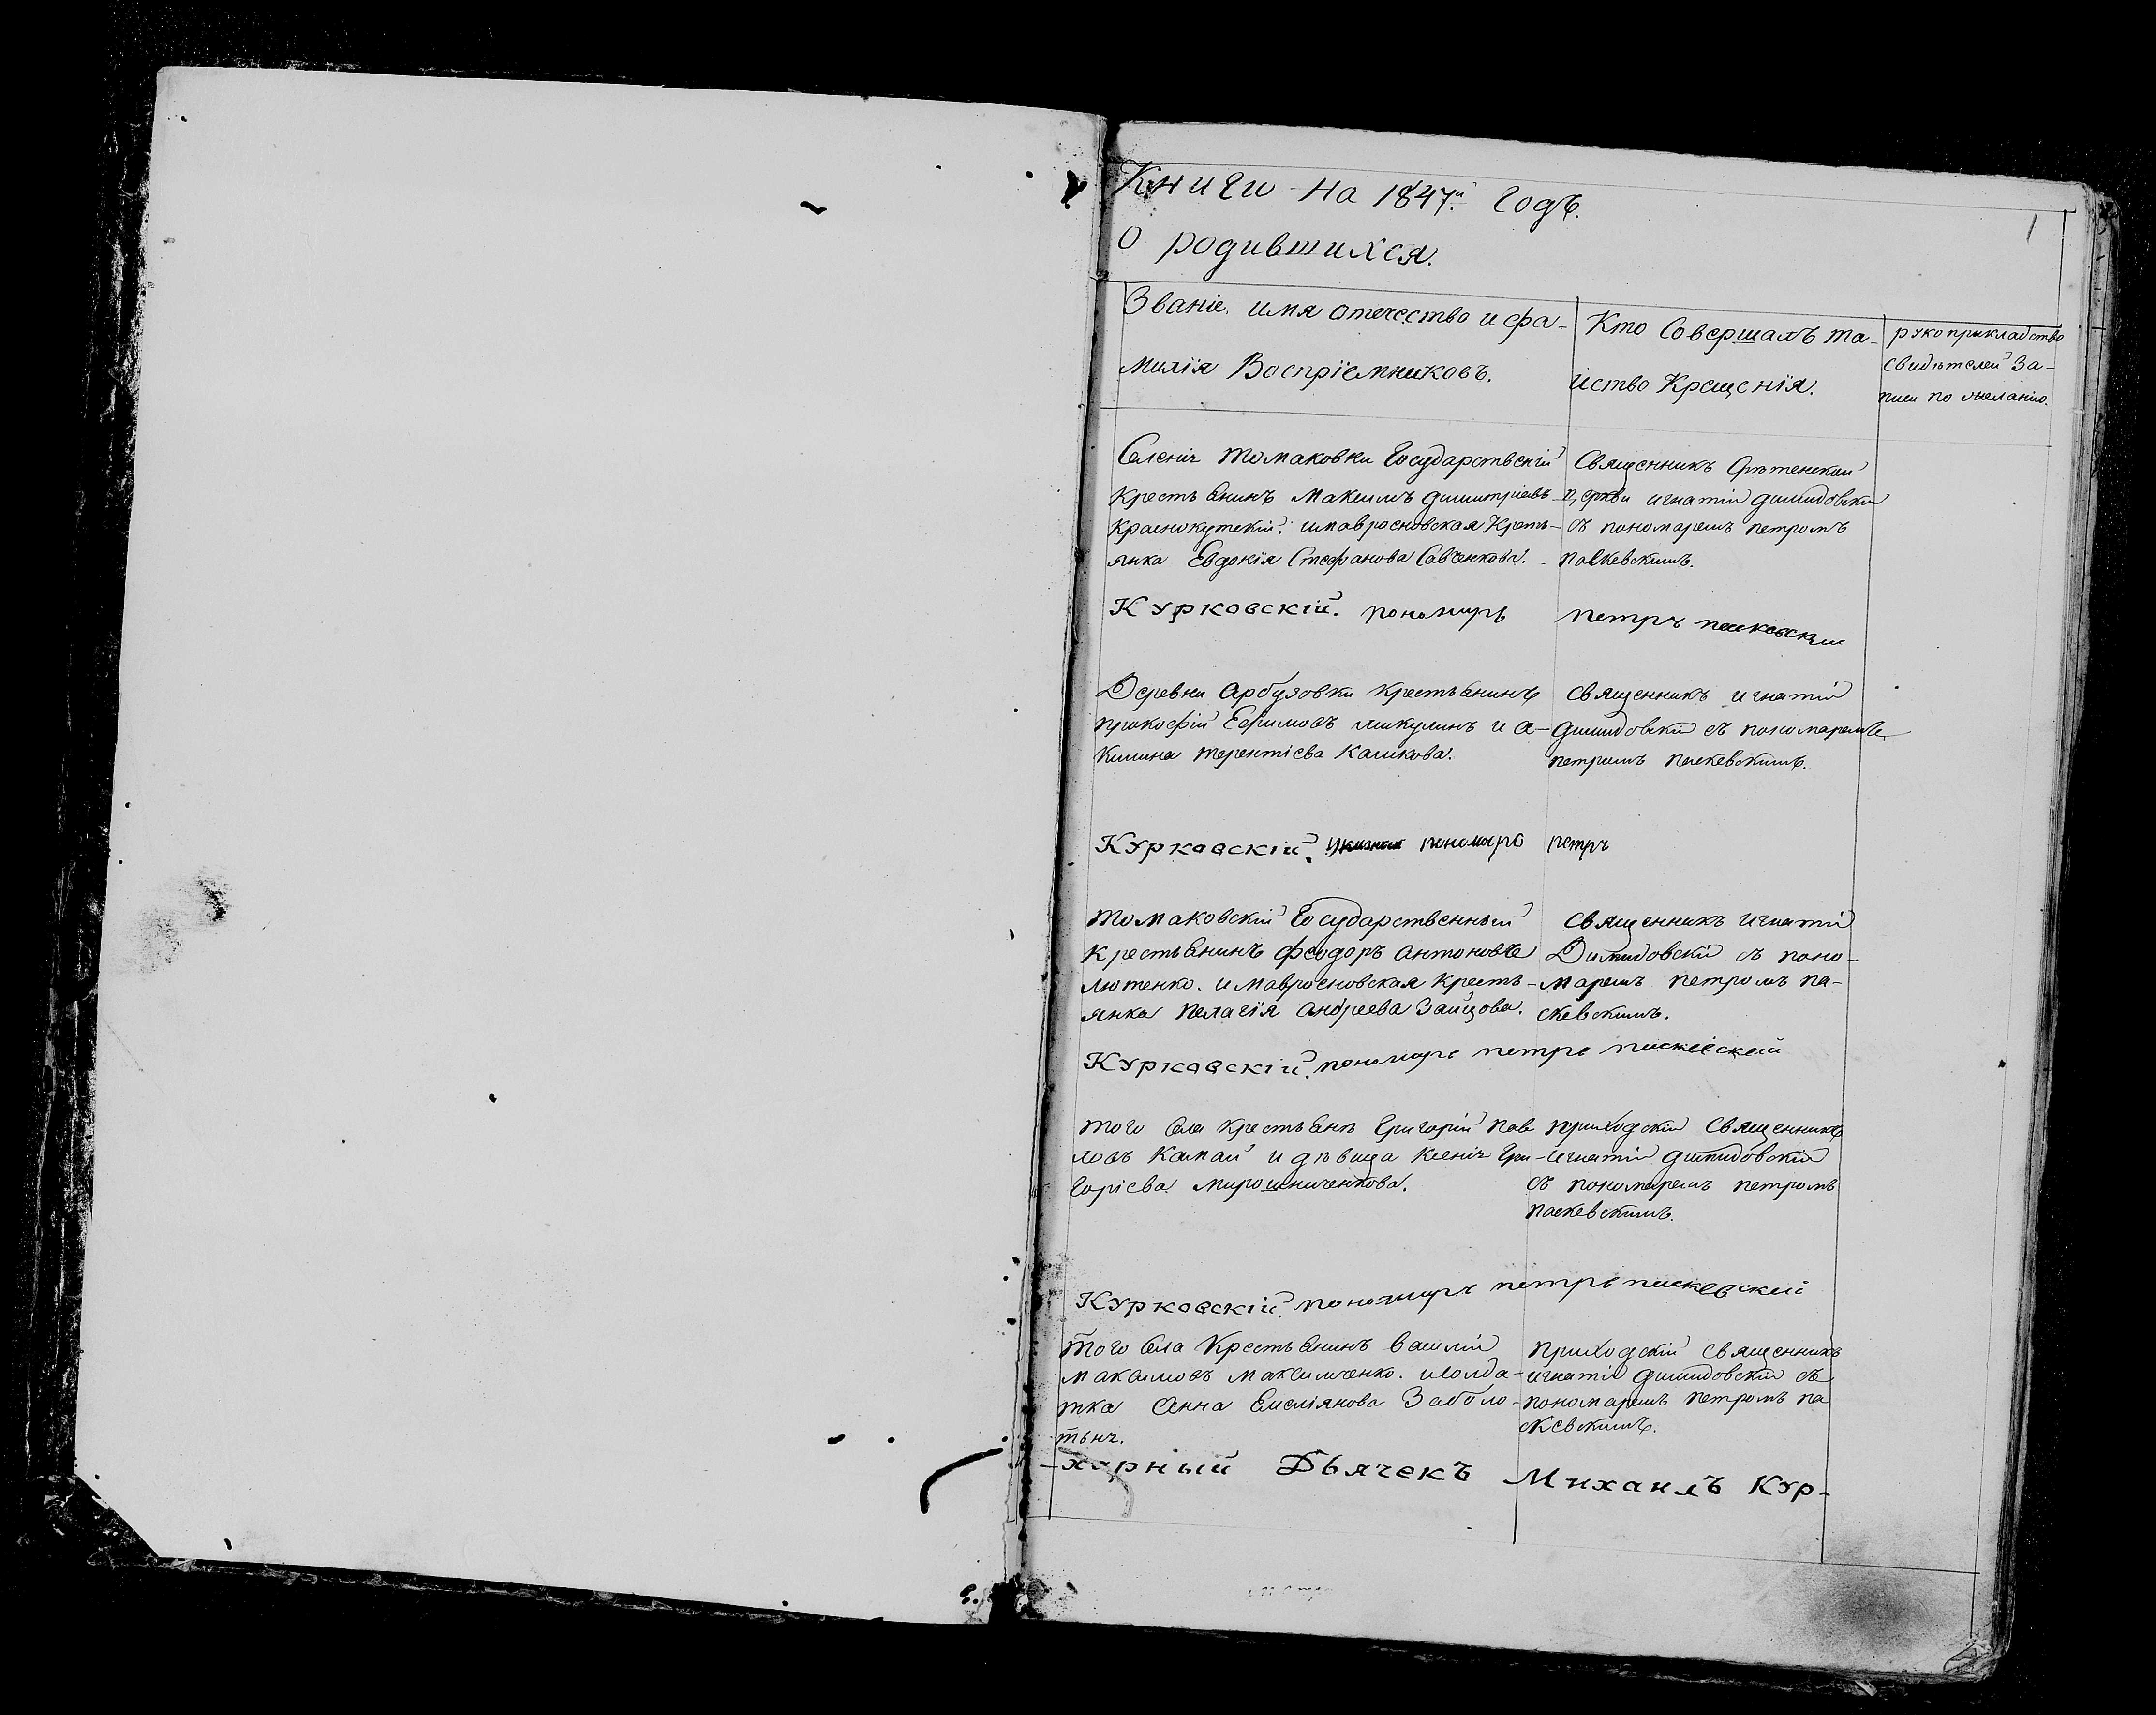 Книги на 1847й годъ.
1
О родившихся.
Званіе. имя отечество и фа-
милія Воспріемниковъ.
Кто Совершалъ та-
иство Крещенія.
рукоприкладство
Свидѣтелей За-
писи по желанію.
Селенія томаковки Государственій
Крестьянинъ Максимъ димитріевъ
Краснокутскій. имавроеновская Кресть-
янка Евдокія Стефанова Савченкова.
Священникъ Срѣтенской
Церкви игнатій димидовскій
съ пономаремъ петромъ
паскевскимъ.
Курковскій. пономарь петръ паскевскій
Деревни Арбузовки Крестьянинъ
прокофій Ефимовъ микулинъ и А-
килина терентіева
Священникъ игнатій
димидовскій съ пономаремъ
петромъ паскевскимъ.
Курковскій. пономарь петръ
томаковскій Государственный
Крестьянинъ феодоръ Антоновъ
лютенко. и мавроеновская Кресть-
янка пелагія Андреева Зайцова.
Священникъ игнатій
Димидовскій съ поно-
маремъ петромъ па-
скевскимъ.
Курковскій. пономарь петръ паскевскій
того села Крестьяне Григорій Пав
ловъ и дѣвица Ксенія Гри-
горіева мирошниченкова.
приходскій Священникъ
игнатій димидовскій
съ пономаремъ петромъ
паскевскимъ.
Курковскій. пономарь петръ паскевскій
того села Крестьянинъ василій
максимовъ максимченко. исолда-
тка Анна Емеліянова Заболо-
тьня.
приходскій Священникъ
игнатій димидовскій съ
пономаремъ петромъ па
скевскимъ.
Дьячекъ Михаилъ Кур-